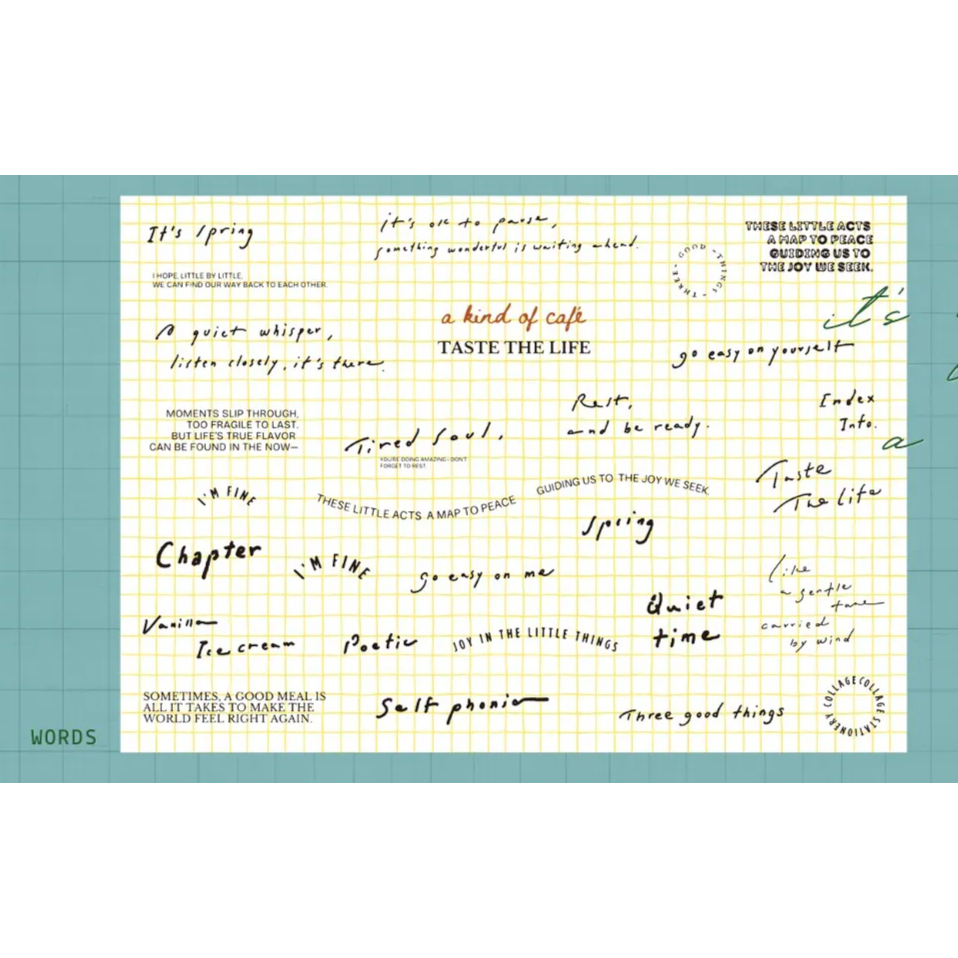 It's Spring
it's ok to pause,
something wonderful is waiting ahead.
GOOD • THINGS • THREE •
THESE LITTLE ACTS
A MAP TO PEACE
GUIDING US TO
THE JOY WE SEEK.
I HOPE, LITTLE BY LITTLE,
WE CAN FIND OUR WAY BACK TO EACH OTHER.
a kind of café
TASTE THE LIFE
it's
A quiet whisper,
listen closely, it's there.
go easy on yourself
MOMENTS SLIP THROUGH,
TOO FRAGILE TO LAST.
BUT LIFE'S TRUE FLAVOR
CAN BE FOUND IN THE NOW—
Tired Soul,
YOU'RE DOING AMAZING - DON'T
FORGET TO REST.
Rest,
and be ready.
Index
Info.
a
I'M FINE
THESE LITTLE ACTS A MAP TO PEACE
GUIDING US TO THE JOY WE SEEK.
Taste
The life
Spring
Chapter
I'M FINE
go easy on me
Quiet
time
like
a gentle
tune
carried
by wind
Vanilla
Ice cream
Poetic
JOY IN THE LITTLE THINGS
SOMETIMES, A GOOD MEAL IS
ALL IT TAKES TO MAKE THE
WORLD FEEL RIGHT AGAIN.
Self phonia
Three good things
COLLAGE COLLAGE STATIONERY
WORDS